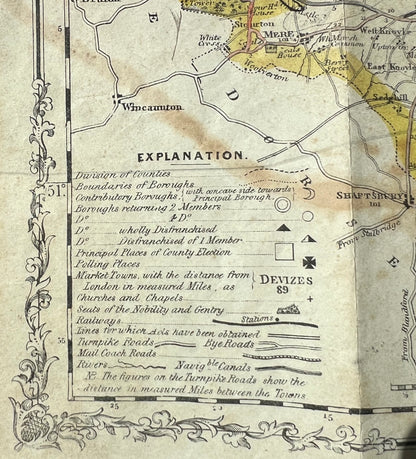 Stourton
House
MERE
101
White
Cross
Zeals
House
West Knoyle
Upton
East Knoyle
Sedghill
Wincaunton
E
D
O
R
SHAFTSBURY
101
From Stalbridge
From Blandford
51°
EXPLANATION.
Division of Counties
Boundaries of Boroughs
Contributory Boroughs, with concave side towards Principal Borough
Boroughs returning 2 Members
D° 1 D°
D° wholly Disfranchised
D° Disfranchised of 1 Member
Principal Places of County Election
Polling Places
Market Towns, with the distance from London in measured Miles, as DEVIZES 89
Churches and Chapels
Seats of the Nobility and Gentry
Railways Stations
Lines for which Acts have been obtained
Turnpike Roads Bye Roads
Mail Coach Roads
Rivers Navigble Canals
NB. The figures on the Turnpike Roads show the
distance in measured Miles between the Towns
25
20